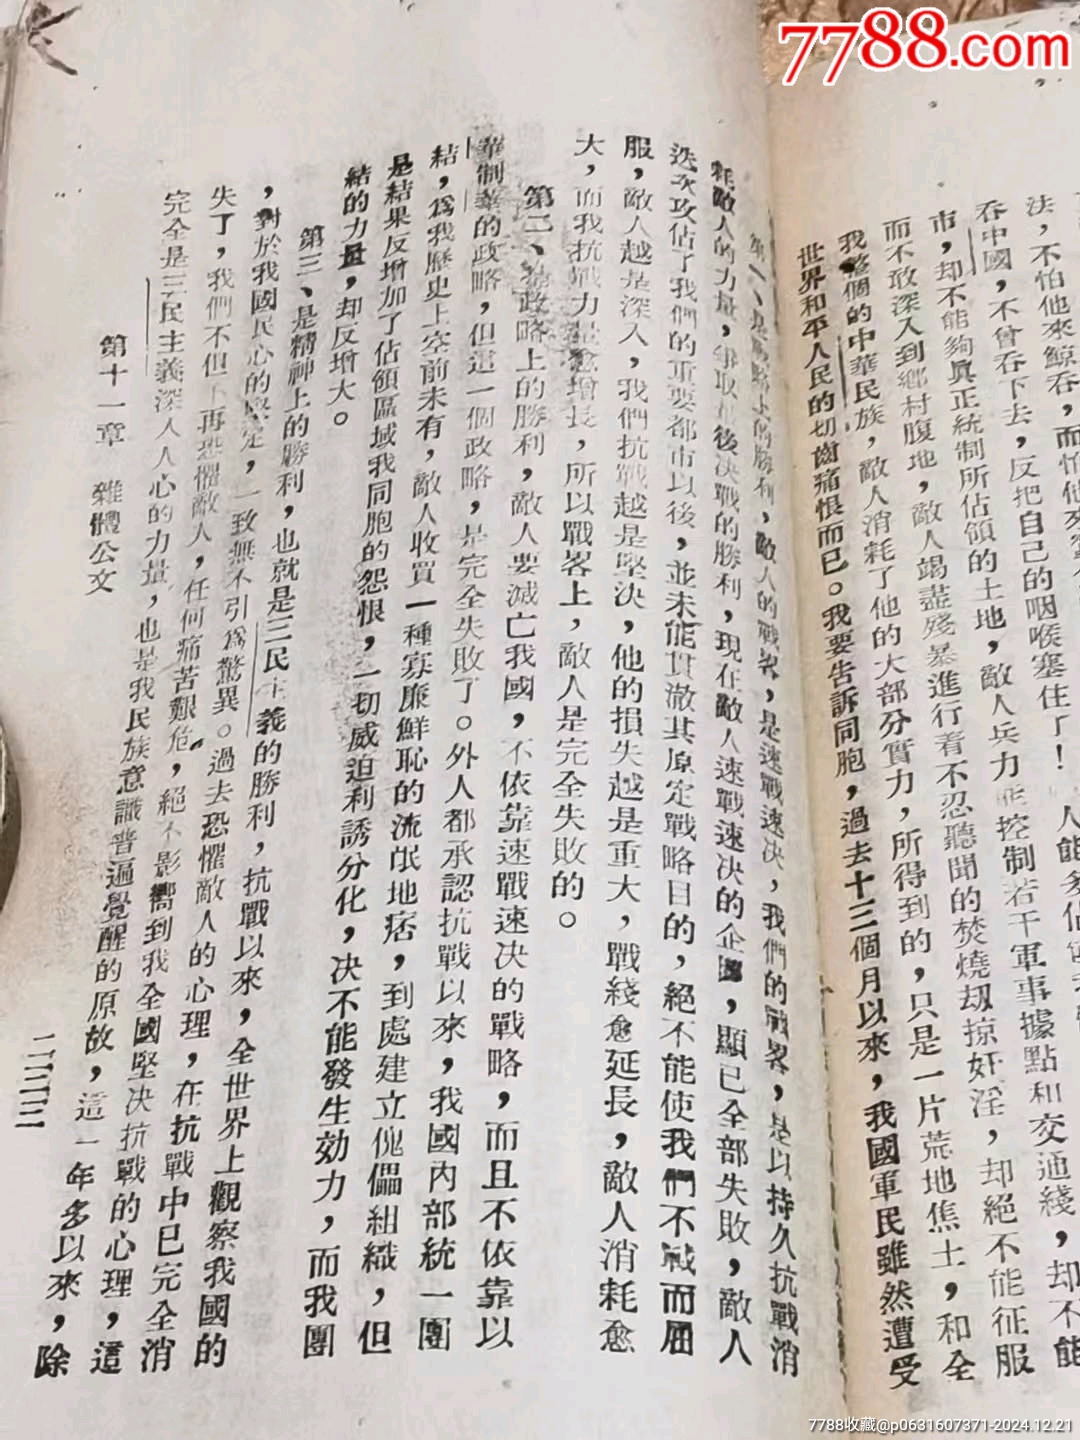 7788.com
法，不怕他來鯨吞，而怕他來
吞中國，不曾吞下去，反把自己的咽喉塞住了！
市，却不能夠眞正統制所佔領的土地，敵人兵力 控制若干軍事據點和交通綫，却不能
而不敢深入到鄉村腹地，敵人竭盡殘暴進行着不忍聽聞的焚燒刼掠奸淫，却絕不能征服
我整個的中華民族，敵人消耗了他的大部分實力，所得到的，只是一片荒地焦土，和全
世界和平人民的切齒痛恨而已。我要告訴同胞，過去十三個月以來，我國軍民雖然遭受
第一、是戰略上的勝利，敵人的戰畧，是速戰速决，我們的戰畧，是以持久抗戰消
耗敵人的力量，爭取最後决戰的勝利，現在敵人速戰速决的企圖，顯已全部失敗，敵人
迭次攻佔了我們的重要都市以後，並未能貫澈其原定戰略目的，絕不能使我們不戰而屈
服，敵人越是深入，我們抗戰越是堅決，他的損失越是重大，戰綫愈延長，敵人消耗愈
大，而我抗戰力量愈增長，所以戰畧上，敵人是完全失敗的。
第二、 政略上的勝利，敵人要滅亡我國，不依靠速戰速决的戰略，而且不依靠以
華制華的政略，但這一個政略，是完全失敗了。外人都承認抗戰以來，我國內部統一團
結，爲我歷史上空前未有，敵人收買一種寡廉鮮恥的流氓地痞，到處建立傀儡組織，但
是結果反增加了佔領區域我同胞的怨恨，一切威迫利誘分化，决不能發生効力，而我團
結的力量，却反增大。
第三、是精神上的勝利，也就是三民主義的勝利，抗戰以來，全世界上觀察我國的
，對於我國民心的堅定，一致無不引爲驚異。過去恐懼敵人的心理，在抗戰中已完全消
失了，我們不但不再恐懼敵人，任何痛苦艱危，絕不影嚮到我全國堅决抗戰的心理，這
完全是三民主義深入人心的力量，也是我民族意識普遍覺醒的原故，這一年多以來，除
第十一章 雜體公文
二三三
7788收藏@p0631607371-2024.12.21